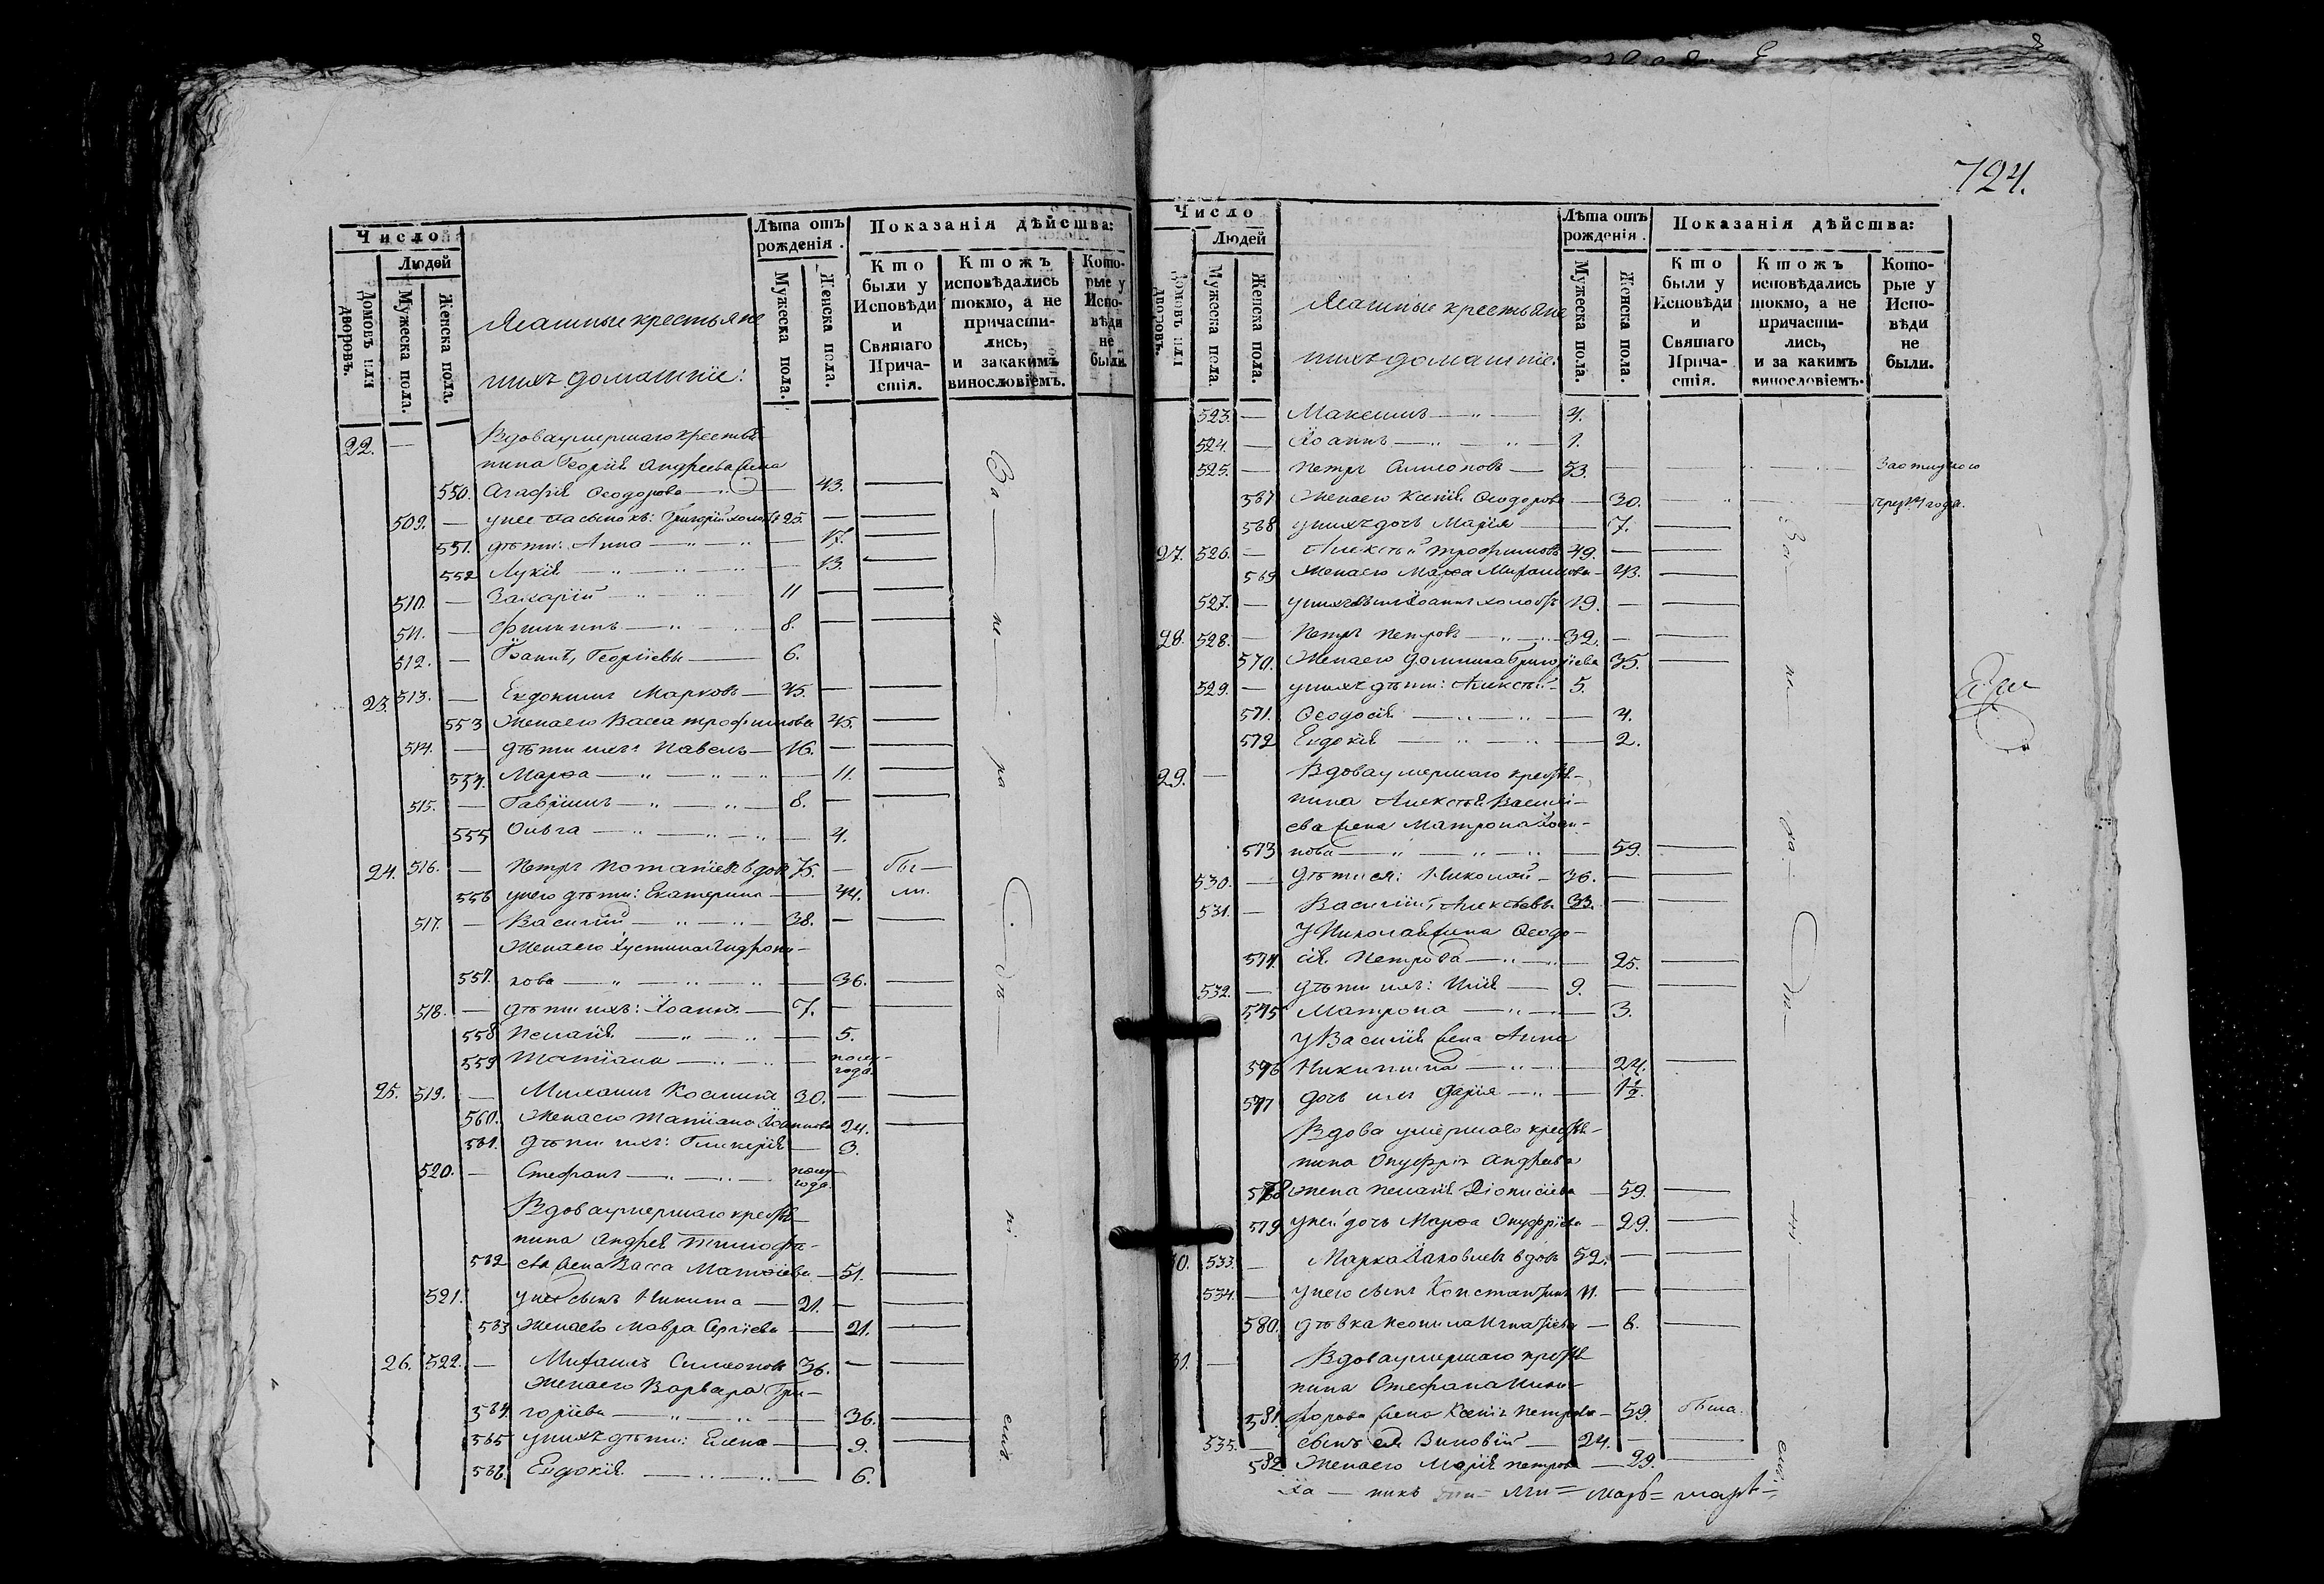 Число
Людей
Домовъ или дворовъ.
Мужеска пола.
Женска пола.
Ясашные крестьяне
и ихъ домашніе:
Лѣта отъ рожденія.
Мужеска пола.
Женска пола.
Показанія дѣйства:
Кто были у Исповѣди и Святаго Причастія.
Ктожъ исповѣдались токмо, а не причастились, и за какимъ винословіемъ.
Которые у Исповѣди не были.
22. — Вдова умершаго крестья-
нина Георгія Андреева жена
550. Агафія Ѳеодорова — 43. —
509. — у нее пасынокъ: Григорій холостъ 25. — —
551. дѣти: Анна — 17. —
552 Лукія — 13. —
510. — Захарій — 11 — —
511. — Филиппъ — 8. — —
512. — Іоаннъ, Георгіевы — 6.
23. 513. — Евдокимъ Марковъ — 45. — —
553 Жена его Васса Трофимова 45. —
514. — дѣти ихъ: Павелъ — 16. — —
554. Марѳа — 11. —
515. — Гавріилъ — 8. — —
555 Ольга — 4.
24. 516. — Петръ Потапіевъ вдовъ 75. — бы —
556 у него дѣти: Екатерина — 44. ли.
517. — Василій — 38. — —
Жена его Іустина Андрони-
557. кова — 36. —
518. — дѣти ихъ: Іоаннъ — 7. — —
558 Пелагія — 5.
559 Татіана — полу-
года.
25. 519. — Михаилъ Косминъ 30. — —
560. Жена его Татіана Іоаннова 24. —
561. дѣти ихъ: Гликерія — 3.
520. — Стефанъ — полу-
года.
Вдова умершаго крестья-
нина Андрея Тимофе-
562 ева жена Васса Матѳіева — 51. —
521. у нее сынъ Никита — 21. — —
563 Жена его Мавра Сергіева — 21. —
26. 522. — Михаилъ Симеоновъ 36. — —
Жена его Варвара Гри-
564. горіева — 36. —
565 у нихъ дѣти: Елена — 9. —
566. Евдокія — 6.
За — не — ра — Дѣ — ні — емъ
724.
Число
Людей
Домовъ или дворовъ.
Мужеска пола.
Женска пола.
Ясашные крестьяне
и ихъ домашніе:
Лѣта отъ рожденія.
Мужеска пола.
Женска пола.
Показанія дѣйства:
Кто были у Исповѣди и Святаго Причастія.
Ктожъ исповѣдались токмо, а не причастились, и за какимъ винословіемъ.
Которые у Исповѣди не были.
523. — Максимъ — 4.
524. — Іоаннъ — 1.
525. — Петръ Симеоновъ — 53. —
567 Жена его Ксенія Ѳеодорова — 30. —
568 у нихъ дочь Марія — 7. —
27. 526. — Алексѣй Трофимовъ 49. — —
569 Жена его Марѳа — 43. —
527. — у нихъ сынъ Іоаннъ холостъ 19. — —
28. 528. — Петръ Петровъ — 32. — —
570. Жена его Домника Григоріева 35. —
529. — у нихъ дѣти: Алексѣй — 5.
571. Ѳеодосія — 4.
572 Евдокія — 2.
29. — Вдова умершаго крестья-
нина Алексѣя Василі-
ева жена Матрона Іоан-
573 нова — 59. —
530. — дѣти ея: Николай — 36. — —
531. — Василій, Алексѣевы 33. — —
У Николая жена Ѳеодо-
574. сія Петрова — 25. —
532. — дѣти ихъ: Илія — 9. — —
575 Матрона — 3.
У Василія жена Анна
576 Никитина — 24. —
577 дочь ихъ Дарія — 1½.
Вдова умершаго крестья-
нина Онуфрія Андреева
578 жена Пелагія Діонисіева — 59. —
579 у ней дочь Марѳа Онуфріева — 29. —
30. 533. — Марко Іаковлевъ вдовъ 52. — —
534. — у него сынъ Константинъ 11. — —
580. дѣвка Неонила Игнатіева — 8. —
31. — Вдова умершаго крестья-
нина Стефана Ники-
581 форова жена Ксенія Петрова — 59. была.
535. — сынъ ея Зиновій — 24. — —
582 Жена его Марія Петрова — 29. —
За — не — ра — Дѣ — ні — емъ